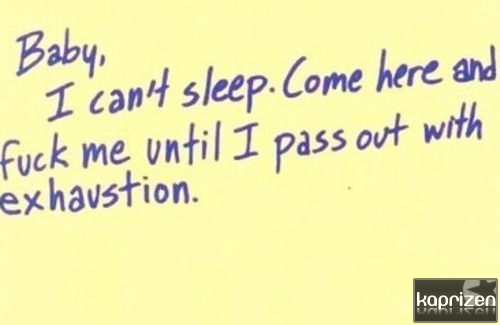 Baby,
I can't sleep. Come here and
fuck me until I pass out with
exhaustion.
kaprizen